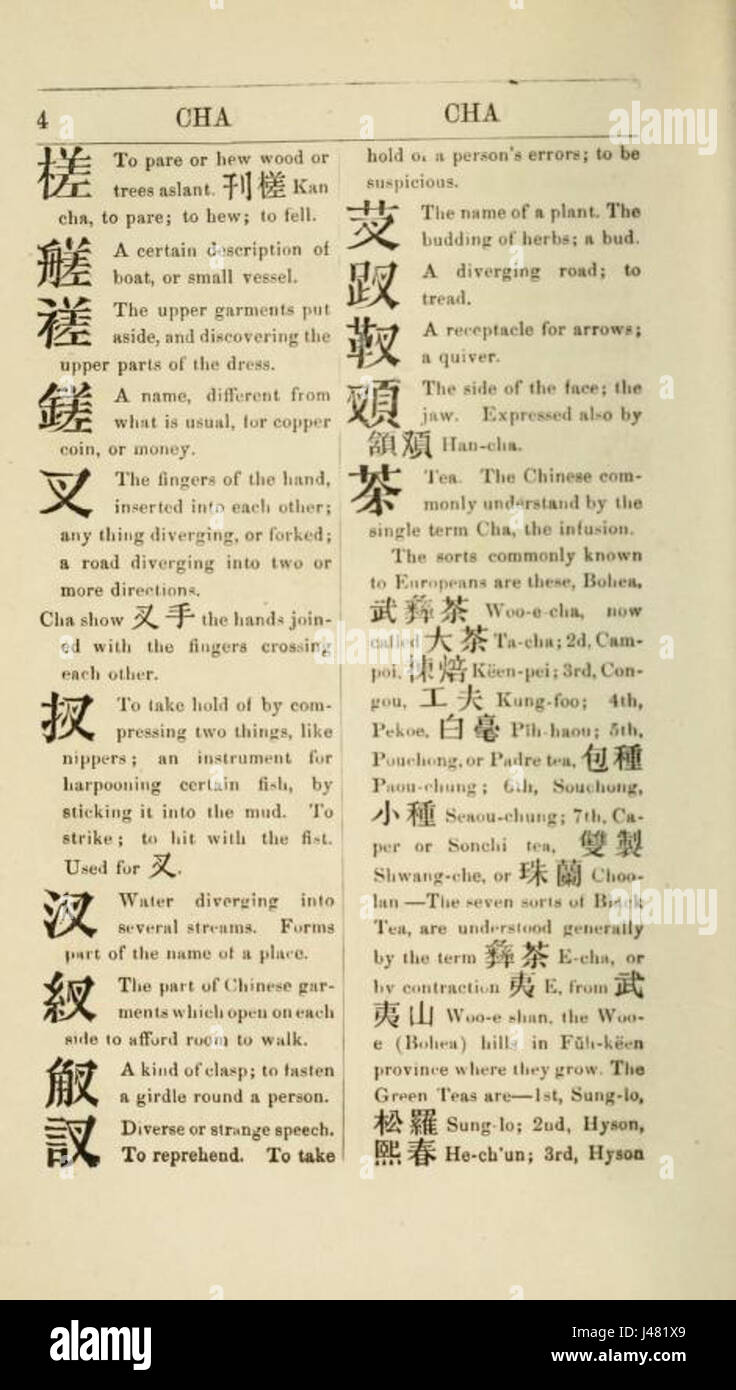 4 CHA CHA
槎 To pare or hew wood or
trees aslant. 刊槎 Kan
cha, to pare; to hew; to fell.
艖 A certain description of
boat, or small vessel.
褨 The upper garments put
aside, and discovering the
upper parts of the dress.
鎈 A name, different from
what is usual, for copper
coin, or money.
叉 The fingers of the hand,
inserted into each other;
any thing diverging, or forked;
a road diverging into two or
more directions.
Cha show 叉手 the hands join-
ed with the fingers crossing
each other.
扠 To take hold of by com-
pressing two things, like
nippers; an instrument for
harpooning certain fish, by
sticking it into the mud. To
strike; to hit with the fist.
Used for 叉.
汊 Water diverging into
several streams. Forms
part of the name of a place.
衩 The part of Chinese gar-
ments which open on each
side to afford room to walk.
A kind of clasp; to fasten
a girdle round a person.
訍 Diverse or strange speech.
To reprehend. To take
hold of a person's errors; to be
suspicious.
芆 The name of a plant. The
budding of herbs; a bud.
跀 A diverging road; to
tread.
靫 A receptacle for arrows;
a quiver.
The side of the face; the
jaw. Expressed also by
Han-cha.
茶 Tea. The Chinese com-
monly understand by the
single term Cha, the infusion.
The sorts commonly known
to Europeans are these, Bohea,
武彝茶 Woo-e-cha, now
called 大茶 Ta-cha; 2d, Cam-
poi, 焙 Këen-pei; 3rd, Con-
gou, 工夫 Kung-foo; 4th,
Pekoe, 白毫 Pih-haou; 5th,
Pouchong, or Padre tea, 包種
Paou-chung; 6th, Souchong,
小種 Seaou-chung; 7th, Ca-
per or Sonchi tea, 雙製
Shwang-che, or 珠蘭 Choo-
lan —The seven sorts of Black
Tea, are understood generally
by the term 彝茶 E-cha, or
by contraction 夷 E, from 武
夷山 Woo-e shan, the Woo-
e (Bohea) hills in Fŭh-këen
province where they grow. The
Green Teas are—1st, Sung-lo,
松羅 Sung-lo; 2nd, Hyson,
熙春 He-ch'un; 3rd, Hyson
alamy stock photo
alamy
J481X9
www.alamy.com